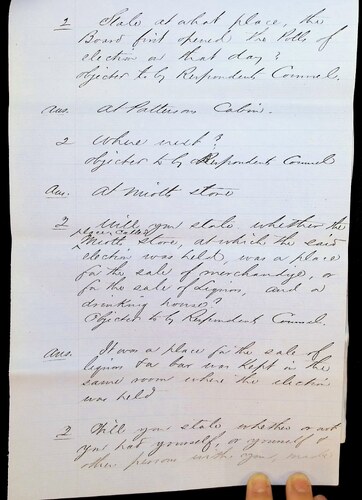 2 State at what place, the
Board first opened the Polls of
election on that day?
objected to by Respondents Counsel.
Ans. At Pattersons Cabin.
2 Where next?
objected to by Respondents Counsel
Ans. At Mioth store
2 Will you state whether the
place called
Mioth Store, at which the said
election was held, was a place
for the sale of merchandise, or
for the sale of liquors, and a
drinking house?
Objected to by Respondents Counsel.
Ans. It was a place for the sale of
liquors & a bar was kept in the
same room where the election
was held
2 Will you state whether or not
you had yourself, or yourself &
other person with you,